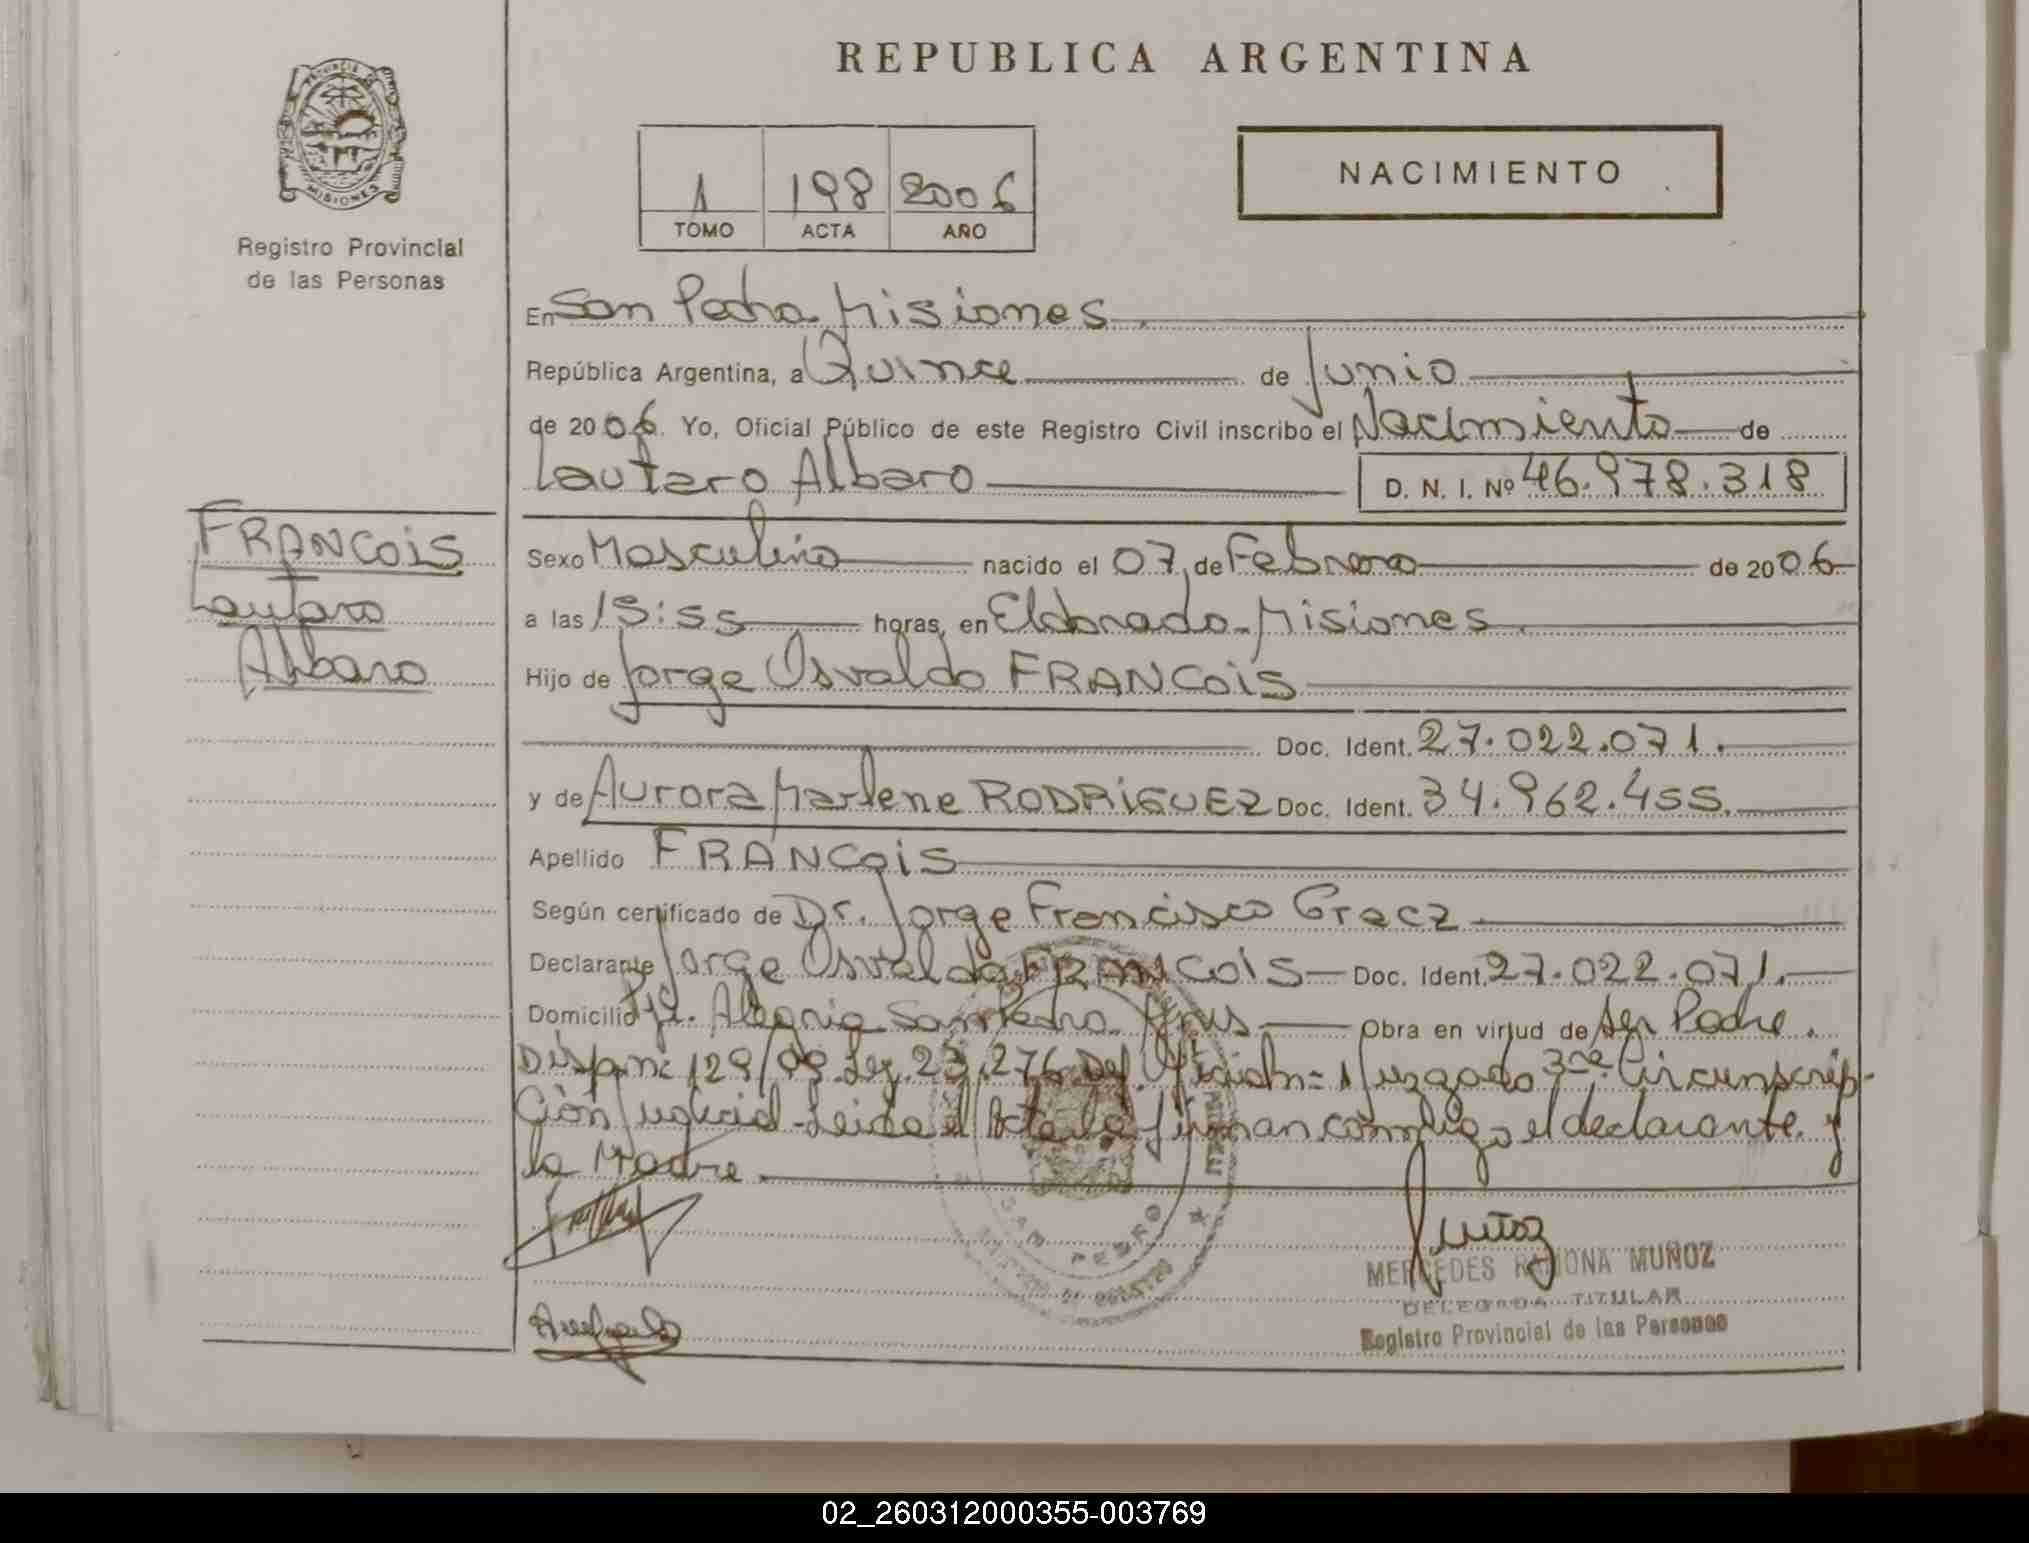 REPUBLICA ARGENTINA
PROVINCIA DE
MISIONES
Registro Provincial
de las Personas
1 198 2006
TOMO ACTA AÑO
NACIMIENTO
En San Pedro Misiones
República Argentina, a Quince de Junio
de 2006. Yo, Oficial Público de este Registro Civil inscribo el Nacimiento de
Lautaro Albaro D. N. I. Nº 46.978.318
FRANCOIS
Lautaro
Albaro
Sexo Masculino nacido el 07 de Febrero de 2006
a las 15:55 horas, en Eldorado Misiones
Hijo de Jorge Osvaldo FRANCOIS
Doc. Ident. 27.022.071.
y de Aurora Marlene RODRIGUEZ Doc. Ident. 34.962.455.
Apellido FRANCOIS
Según certificado de Dr. Jorge Francisco
Declarante Jorge Osvaldo FRANCOIS Doc. Ident. 27.022.071.
Domicilio Alegria San Pedro Mnes Obra en virtud de ser Padre.
129/09 Ley. 23.276 Def. Oficial n= 1 Juzgado 3ra Circunscrip-
ción Judicial-Leida el Acta la firman conmigo el declarante y
la Madre.
SAN PEDRO
MERCEDES RAMONA MUÑOZ
DELEGADA TITULAR
Registro Provincial de las Personas
02_260312000355-003769